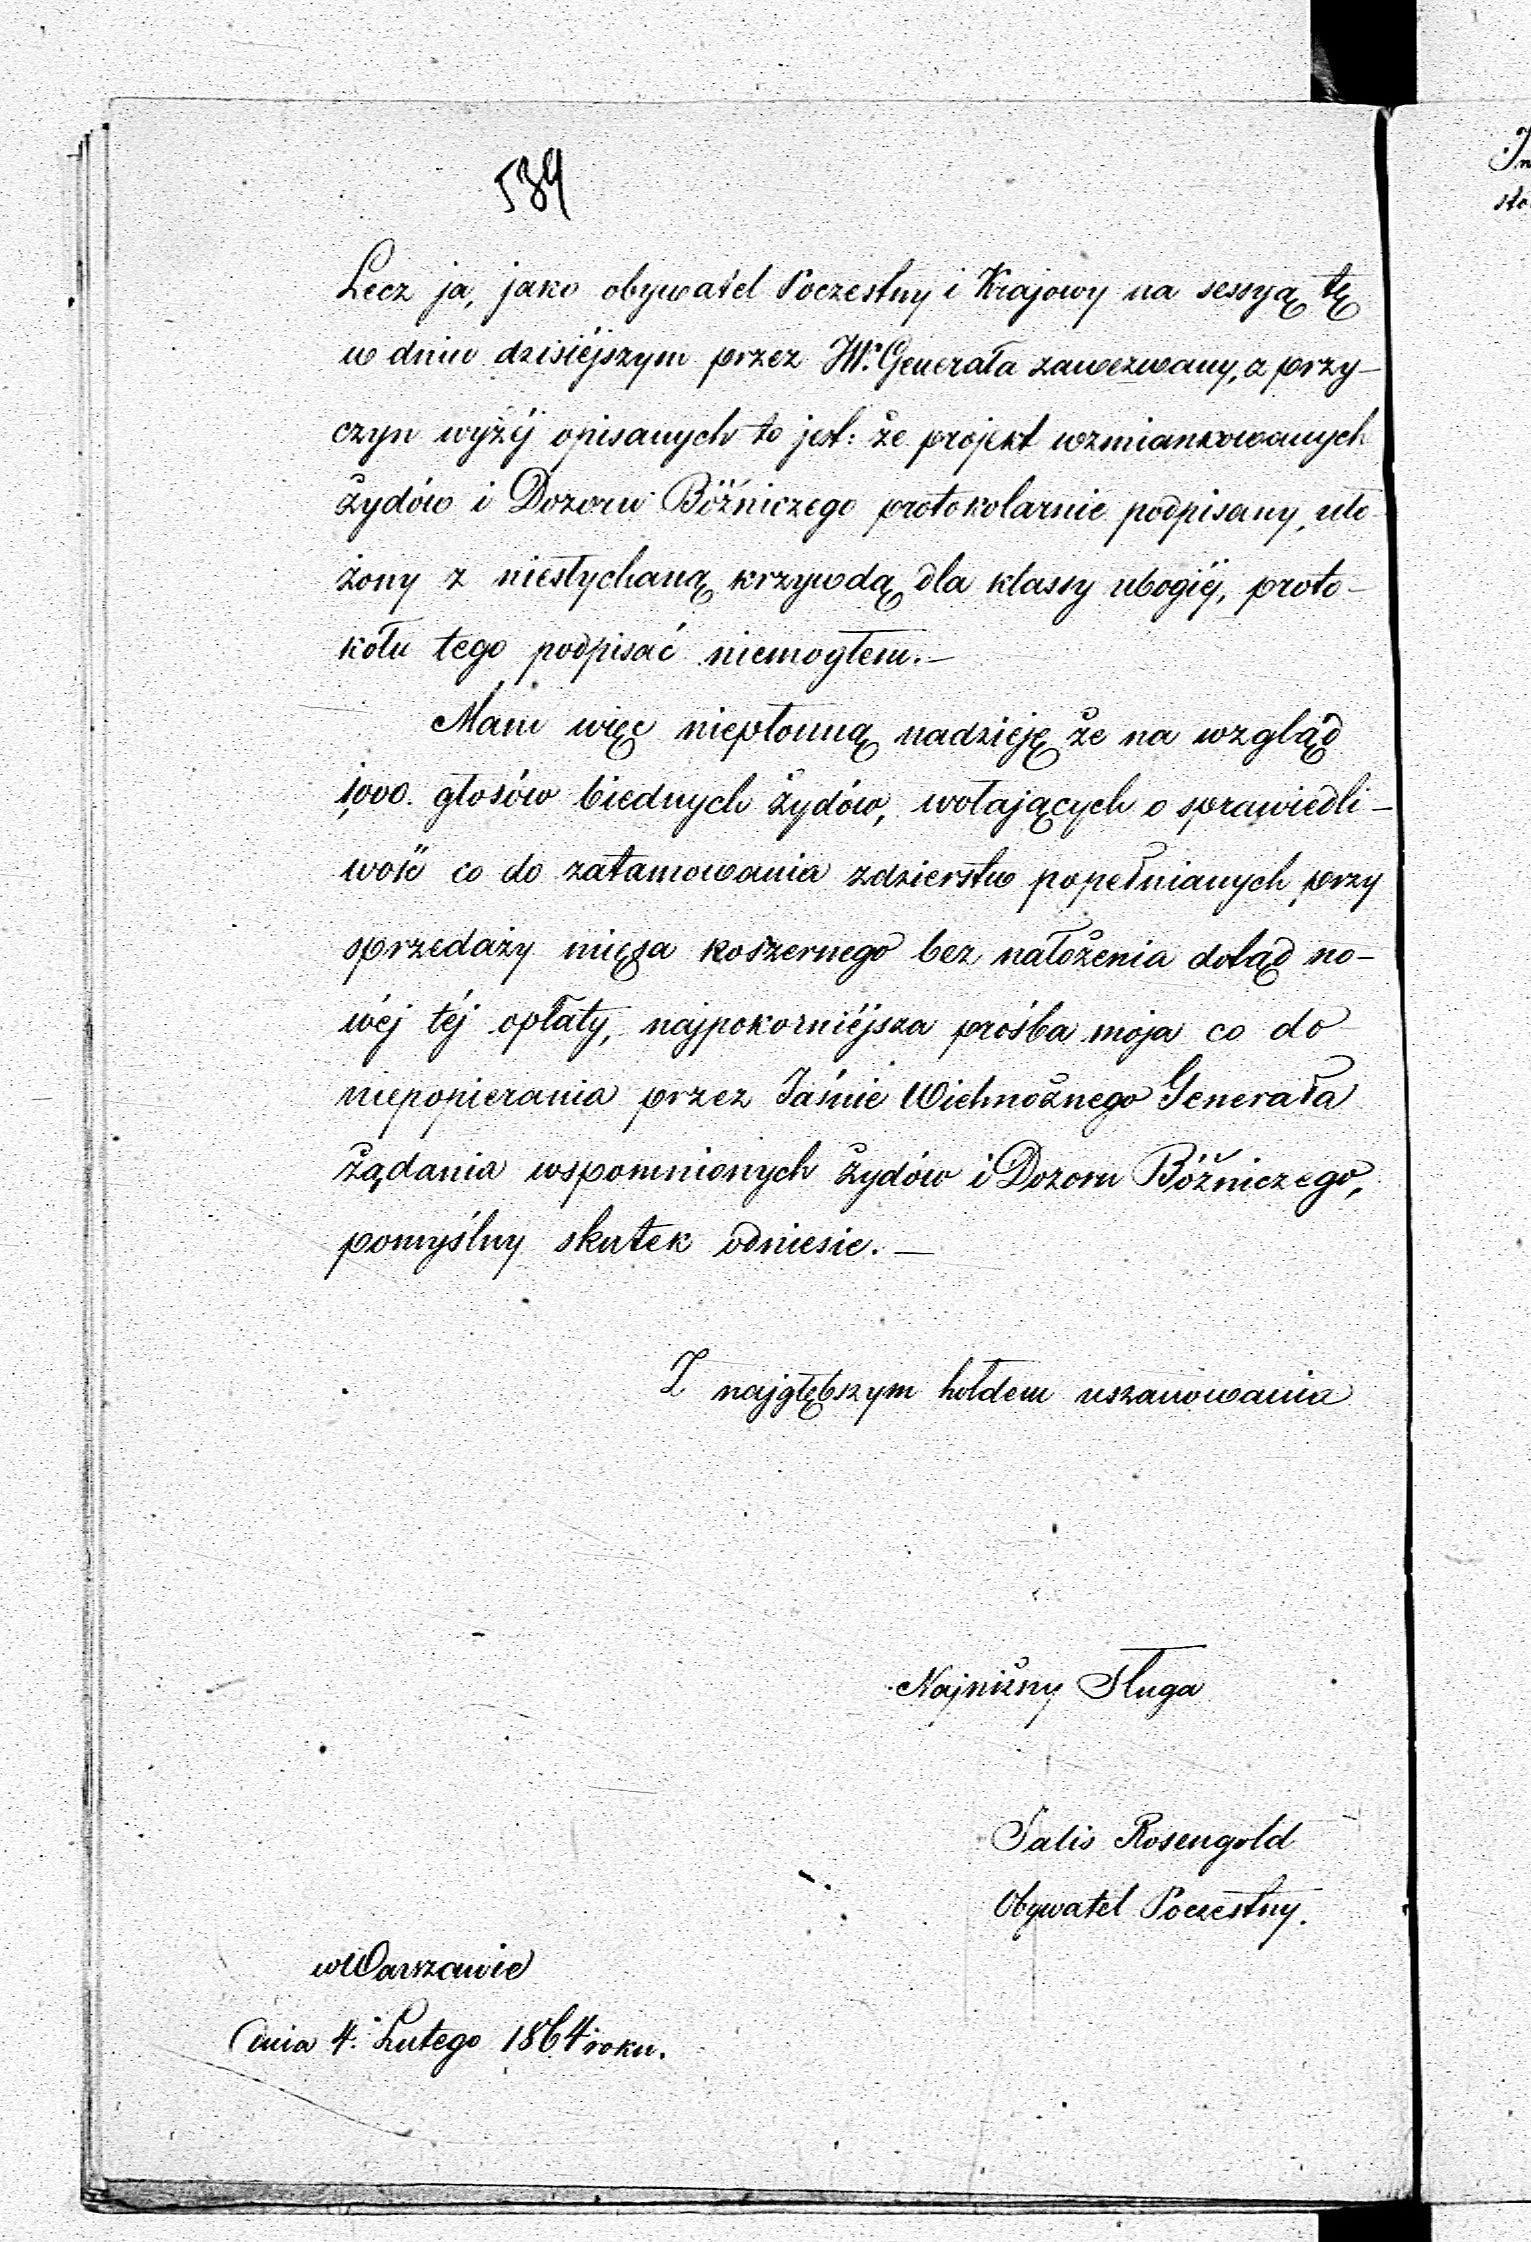 534
Lecz ja, jako obywatel Poczestny i Krajowy na sessyą tę
w dniu dzisiéjszym przez JW. Generała zawezwany, z przy-
czyn wyżéj opisanych to jest: że projekt wzmiankowanych
żydów i Dozoru Bóżniczego protokolarnie podpisany, uło-
żony z niesłychaną krzywdą dla klassy ubogiéj, proto-
kółu tego podpisać niemogłem.—
Mam więc niepłonną nadzieję że na wzgląd
1,000. głosów biednych żydów, wołających o sprawiedli-
wość co do zatamowania zdzierstw popełnianych przy
sprzedaży mięsa koszernego bez nałożenia dotąd no-
wéj téj opłaty, najpokorniéjsza prośba moja co do
niepopierania przez Jaśnie Wielmożnego Generała
żądania wspomnionych żydów i Dozoru Bóżniczego,
pomyślny skutek odniesie.—
Z najgłębszym hołdem uszanowania
Najniższy Sługa
Salis Rosengold
Obywatel Poczestny.
w Warszawie
dnia 4. Lutego 1864 roku.